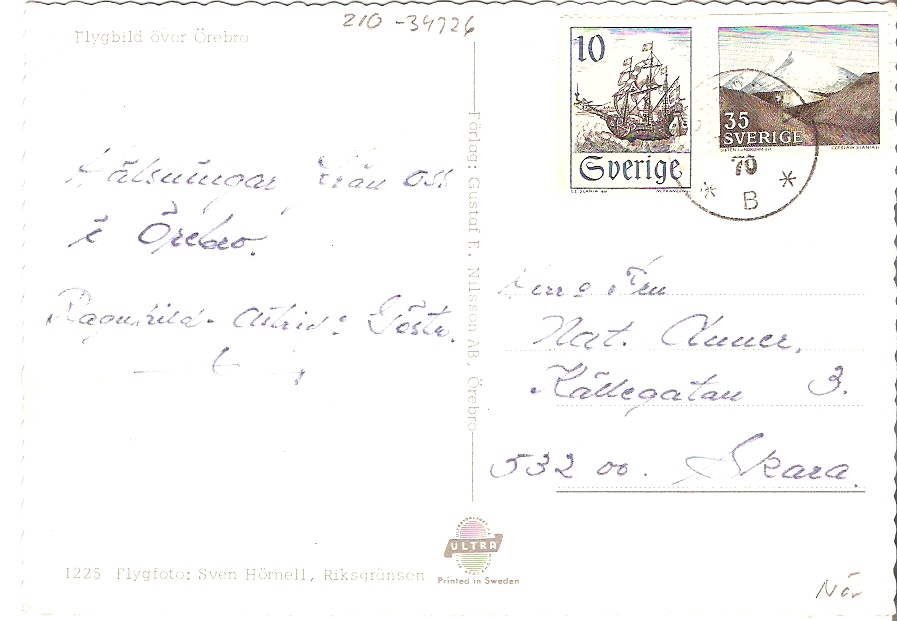 210 -34726
Flygbild över Örebro
10
Sverige
35
SVERIGE
70
* B *
Hälsningar från oss
i Örebro.
Ragnhild - Astrid o Gösta.
Förlag: Gustaf E. Nilsson AB, Örebro
Herr o Fru
Nat.
Källegatan 3.
532 00. Skara.
ULTRA
Printed in Sweden
1225 Flygfoto: Sven Hörnell, Riksgränsen